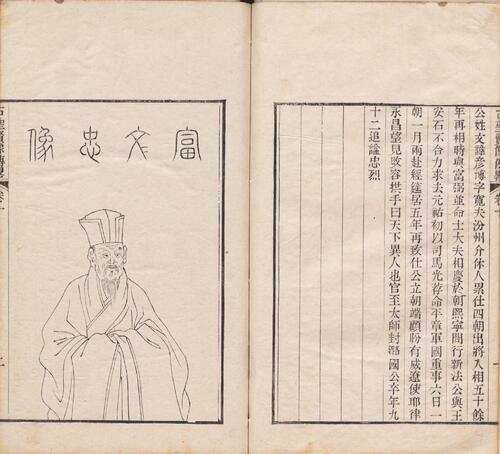 公姓文諱彥博字寬夫汾州介休人累仕四朝出將入相五十餘
年再相時與富弼並命士大夫相慶於朝熙寧間行新法公與王
安石不合力求去元祐初以司馬光荐命平章軍國重事六日一
朝一月兩赴經筵居五年再致仕公立朝端顧盼有威遼使耶律
永昌望見改容拱手曰天下異人也官至太師封潞國公卒年九
十二追謚忠烈
富文忠像
古聖賢像傳畧